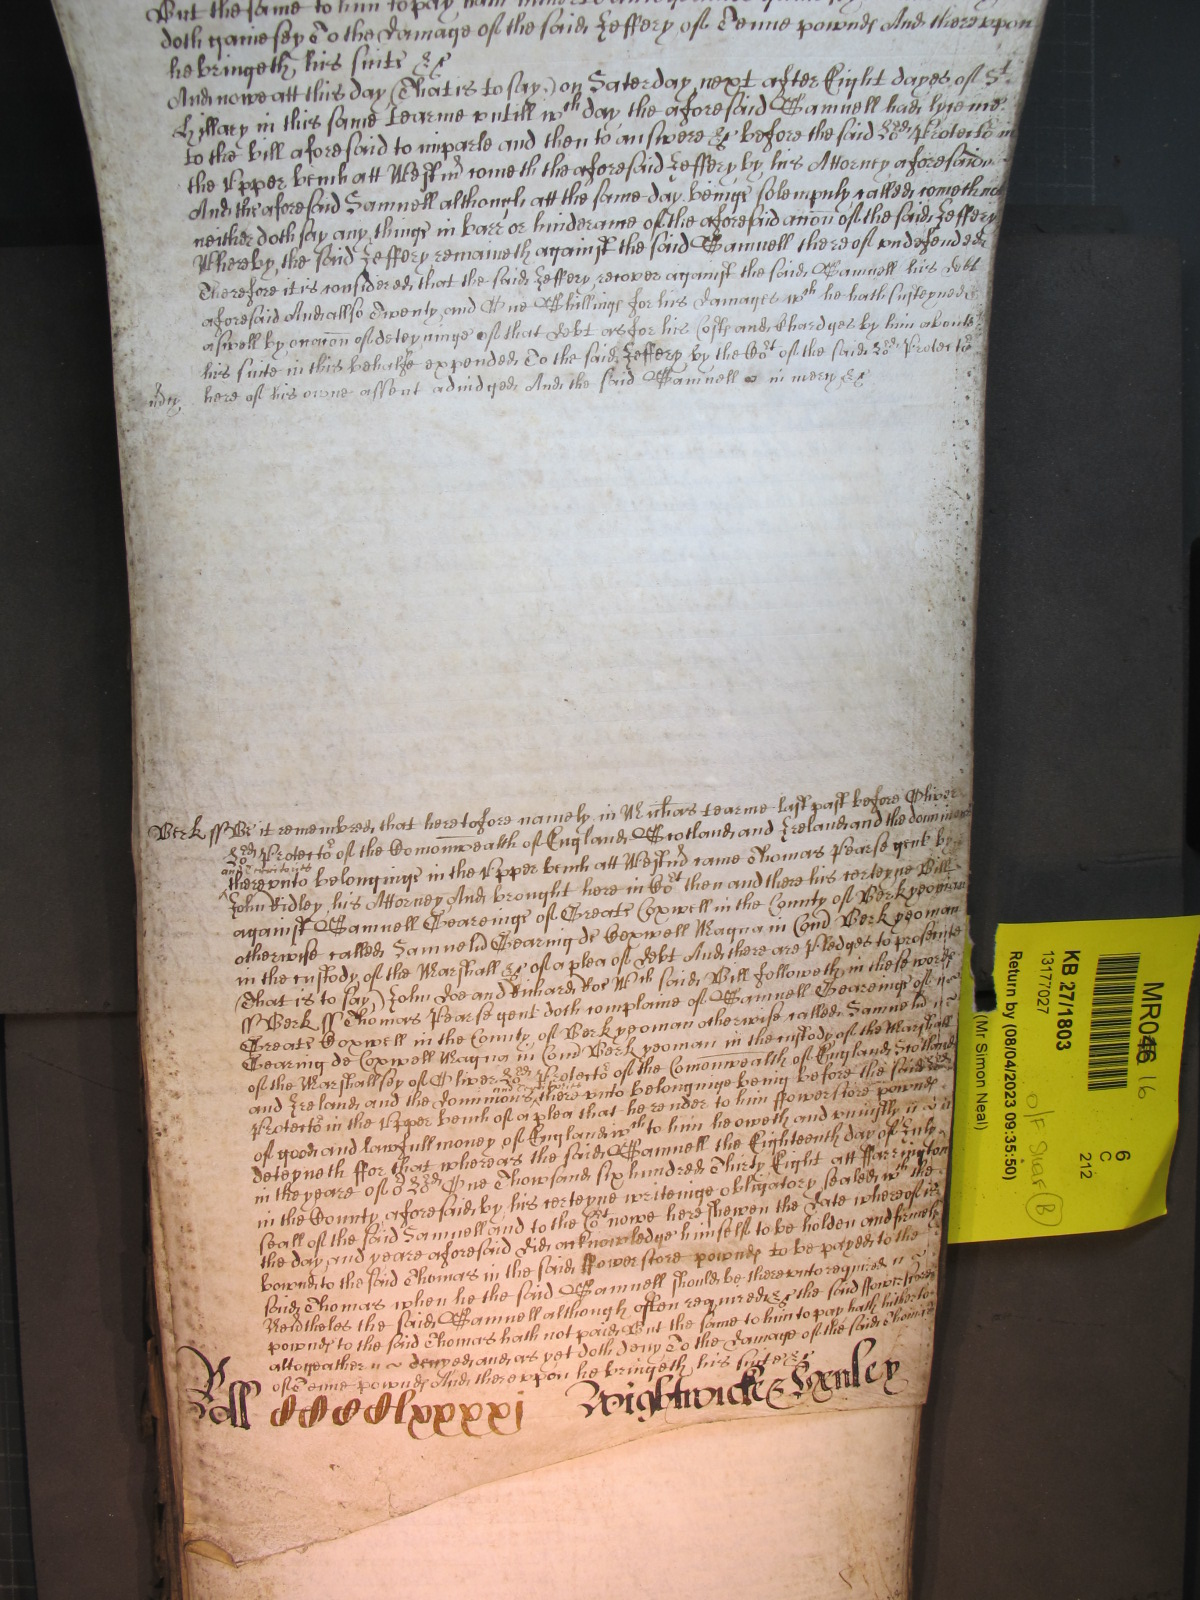 But the same to him to pay hath
doth gainesey To the damage of the said Jeffery of Tenne pownds And thereupon
he bringeth his suite &c
And nowe att this day (That is to say) on Saterday next after Eight dayes of St.
Hillary in this same Tearme untill wch day the aforesaid Samuell had lycence
to the bill aforesaid to imparle and then to answere &c before the said Lord Protector in
the Upper bench att Westmr cometh the aforesaid Jeffery by his Attorney aforesaid
And the aforesaid Samuell although att the same day beinge solempnly called cometh not
neither doth say any thinge in barr or hinderance of the aforesaid accon of the said Jeffery
Whereby the said Jeffery remaineth against the said Samuell thereof undefended
Therefore it is considered that the said Jeffery recover against the said Samuell his debt
aforesaid And allso Twenty and One Shillings for his damages wch he hath susteyned
aswell by occacon of deteyninge of that debt as for his Costs and Chardges by him aboute
his suite in this behalfe expended To the said Jeffery by the Cort of the said Lord Protector
here of his owne assent adiudged And the said Samuell in mercy &c
mcy
Berk ss Be it remembred that heretofore namely in Michas tearme last past before Oliver
Lord Protector of the Comonwealth of England Scotland and Ireland and the dominions
and territories
thereunto belonginge in the Upper bench att Westmr came Thomas Pearse gent by
John Ridley his Attorney And brought here in Cort then and there his certeyne Bill
against Samuell Gearinge of Greate Coxwell in the County of Berk yeoman
otherwise called Samuel Gearing de Coxwell Magna in Com Berk yeoman
in the custody of the Marshall &c of a plea of debt And there are Pledges to prosecute
(That is to say) John Doe and Richard Roe Wch said Bill followeth in these words
ss Berk ss Thomas Pearse gent doth complaine of Samuell Gearinge of
Greate Coxwell in the County of Berk yeoman otherwise called Samuel
Gearing de Coxwell Magna in Com Berk yeoman in the custody of the Marshall
of the Marshallsey of Oliver Lord Protector of the Comonwealth of England Scotland
and Ireland and the dominions thereunto belonginge being before the said Lord
Protector in the Upper bench of a plea that he render to him ffowerscore pownds
of good and lawfull money of England wch to him he oweth and uniustly
deteyneth ffor that whereas the said Samuell the Eighteenth day of July
in the yeare of or Lord One Thowsand six hundred Thirty Eight att Farrington
in the County aforesaid by his certeyne writeinge obligatory sealed wth the
seall of the said Samuell and to the Cort nowe here shewen the date whereof is
the day and yeare aforesaid did acknowledge himself to be holden and firmely
bownd to the said Thomas in the said ffowerscore pownds to be payed to the
said Thomas when he the said Samuell should be thereunto required
Neverthelesse the said Samuell although often required &c the said ffowerscore
pownds to the said Thomas hath not paid But the same to him to pay hath hitherto
altogeather denyed and as yet doth deny To the damage of the said Thomas
of Tenne pownds And thereupon he bringeth his suite &c
Roll CCCClxxxxi Wightwicke &
MR046 16
KB 27/1803
13177027
Return by (08/04/2023 09:35:50)
(Mr Simon Neal)
6
C
212
O/F Staff B